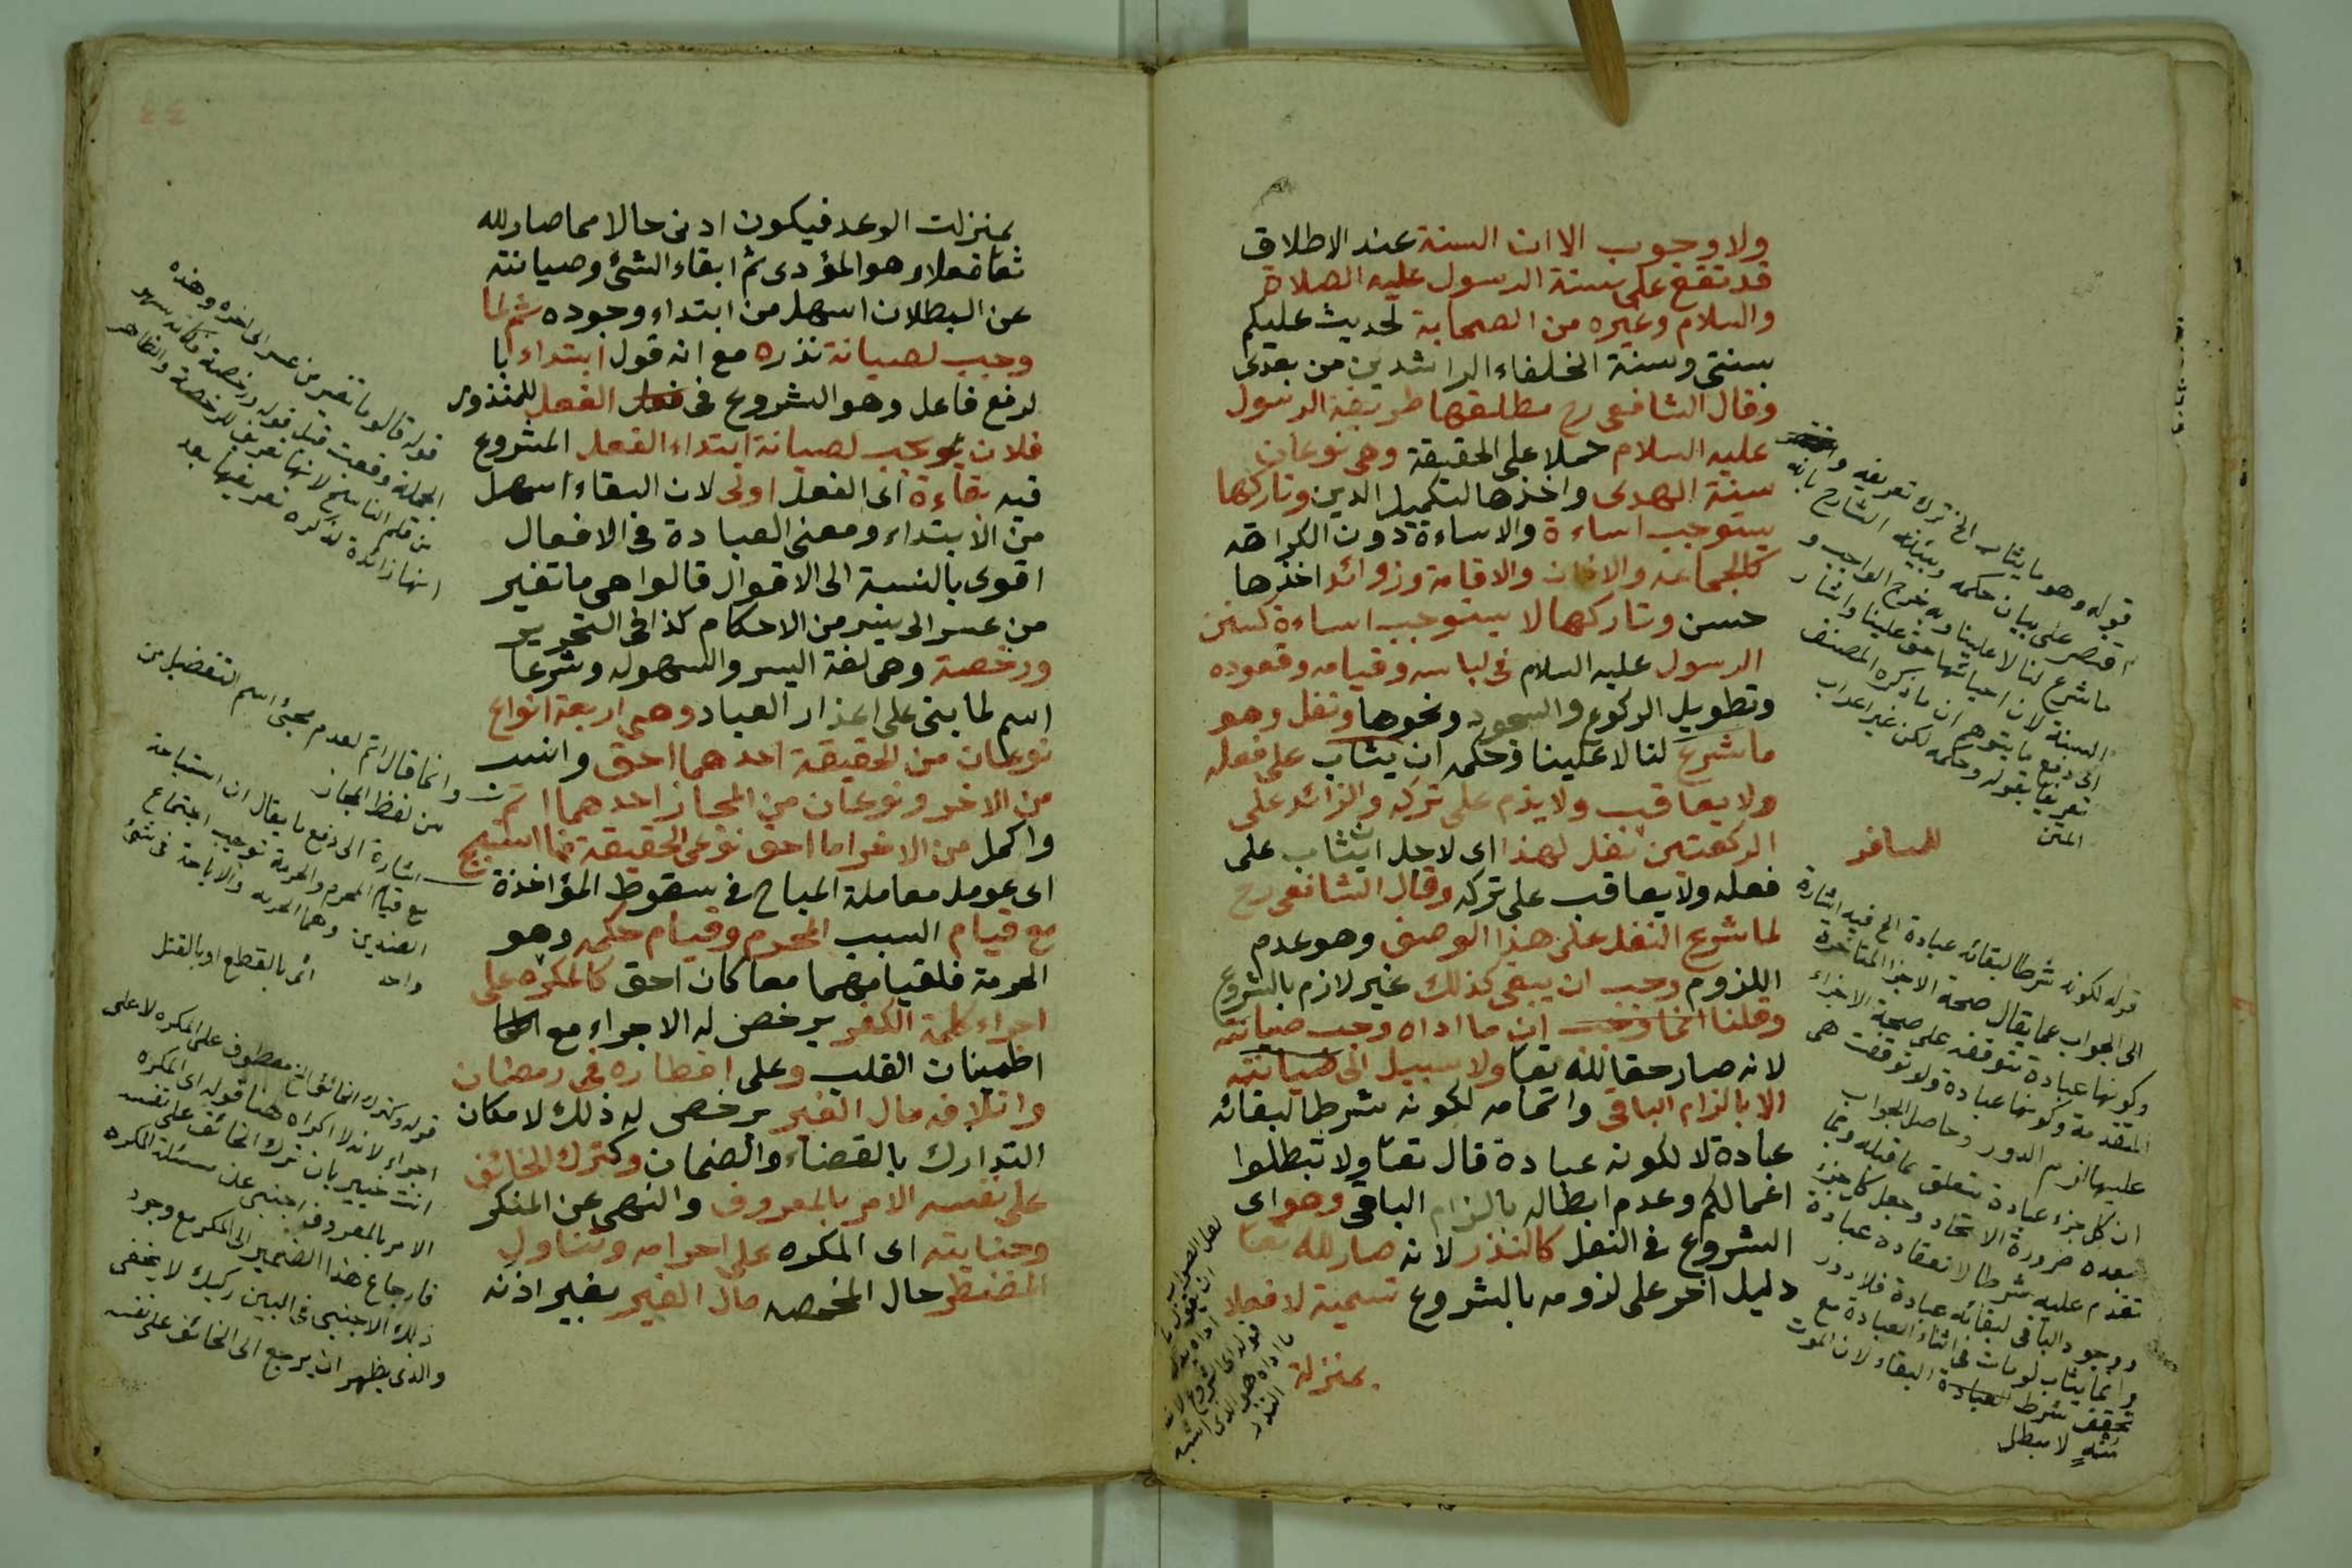 ولا وجوب الا ان السنة عند الاطلاق
قد تقع على سنة الرسول عليه الصلاة
والسلام وغيره من الصحابة لحديث عليكم
بسنتى وسنة الخلفاء الراشدين من بعدى
وقال الشافعى رح مطلقها طريقة الرسول
عليه السلام حملا على الحقيقة وهى نوعان
سنة الهدى واخذها لتكميل الدين وتاركها
يستوجب اساءة والاساءة دون الكراهة
كالجماعة والاذان والاقامة وزوائد اخذها
حسن وتاركها لا يستوجب اساءة كسنن
الرسول عليه السلام فى لباسه وقيامه وقعوده
وتطويل الركوع والسجود ونحوها ونفل وهو
ما شرع لنا لا علينا وحكمه ان يثاب على فعله
ولا يعاقب ولا يذم على تركه والزائد على
الركعتين نفل لهذا اى لاجل ان يثاب على
للمسافر
فعله ولا يعاقب على تركه وقال الشافعى رح
لما شرع النفل على هذا الوصف وهو عدم
اللزوم وجب ان يبقى كذلك غير لازم بالشروع
وقلنا ان ما اداه وجب صيانته
لانه صار حقا لله تعا ولا سبيل الى صيانته
الا بالزام الباقى واتمامه لكونه شرطا لبقائه
عبادة لا لكونه عبادة قال تعا ولا تبطلوا
اعمالكم وعدم ابطاله بالزام الباقى وهو اى
الشروع فى النفل كالنذر لانه صار لله تعا
دليل اخر على لزومه بالشروع تسمية لا فعلا
بمنزلة
قوله وهو ما يثاب الخ ترك تعريفه و
اقتصر على بيان حكمه وبينه الشارح بانه
ما شرع لنا لا علينا وبه خرج الواجب و
السنة لان احيائها حق علينا واشار
الى دفع ما يتوهم ان ما ذكره المصنف
تعريفا بقوله وحكمه لكن غير اعراب
المتن
قوله لكونه شرطا لبقائه عبادة الخ فيه اشارة
الى الجواب عما يقال صحة الاجزاء المتأخرة
وكونها عبادة تتوقف على صحة الاجزاء
المتقدمة وكونها عبادة ولو توقفت هى
عليها لزم الدور وحاصل الجواب
ان كل جزء عبادة يتعلق بما قبله وبما
بعده ضرورة الاتحاد وجعل كل جزء
تقدم عليه شرطا لانعقاده عبادة
ووجود الباقى لبقائه عبادة فلا دور
وانما يثاب لو مات فى اثناء العبادة مع
تحقق شرط البقاء لان الموت
منهٍ لا مبطل
بمنزلت الوعد فيكون ادنى حالا مما صار لله
تعا فعلا وهو المؤدى ثم ابقاء الشئ وصيانته
عن البطلان اسهل من ابتداء وجوده ثم لما
وجب لصيانة نذره مع انه قول ابتداء با
لرفع فاعل وهو الشروع فى الفعل للمنذور
فلان يجب لصيانة ابتداء الفعل المشروع
فيه بقاءه اى الفعل اولى لان البقاء اسهل
من الابتداء ومعنى العبادة فى الافعال
اقوى بالنسبة الى الاقوال قالوا هى ما تغير
من عسر الى يسر من الاحكام كذا فى التحرير
ورخصة وهى لغة اليسر والسهولة وشرعا
اسم لما بنى على اعذار العباد وهى اربعة انواع
نوعان من الحقيقة احدهما احق وانسب
من الاخر ونوعان من المجاز احدهما اتم
واكمل من الاخر اما احق نوعى الحقيقة فما استبيح
اى عومل معاملة المباح فى سقوط المؤاخذة
مع قيام السبب المحرم وقيام حكمه وهو
الحرمة فلقيامهما معا كان احق كالمكره على
اجراء كلمة الكفر يرخص له الاجراء مع
اطمينان القلب وعلى افطاره فى رمضان
واتلافه مال الغير يرخص له ذلك لامكان
التدارك بالقضاء والضمان وكترك الخائف
على نفسه الامر بالمعروف والنهى عن المنكر
وجنايته اى المكره على احرامه وتناول
المضطر حال المخمصه مال الغير بغير اذنه
قوله قالوا ما تغير من عسر الى اخره وهذه
الجملة وقعت قبل قوله ورخصة وكانه سهو
من قلم الناسخ لانها تعريف للرخصة والظاهر
انها زائدة لذكره تعريفها بعد
وانما قال اتم لعدم مجئ اسم التفضيل من
من لفظ المجاز
اشارة الى دفع ما يقال ان استباحة
مع قيام المحرم والحرمة توجب اجتماع
الضدين وهما الحرمة والاباحة فى شئ
واحد
اى بالقطع او بالقتل
قوله وكترك الخائف الخ معطوف على المكره لا على
اجراء لانه لا اكراه هنا قوله اى المكره
انت خبير بان ترك الخائف على نفسه
الامر بالمعروف اجنبى عن مسئلة المكره
فارجاع هذا الضمير الى المكره مع وجود
ذلك الاجنبى فى البين ركيك لا يخفى
والذى يظهر ان يرجع الى الخائف على نفسه